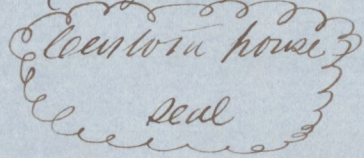 Custom house
seal